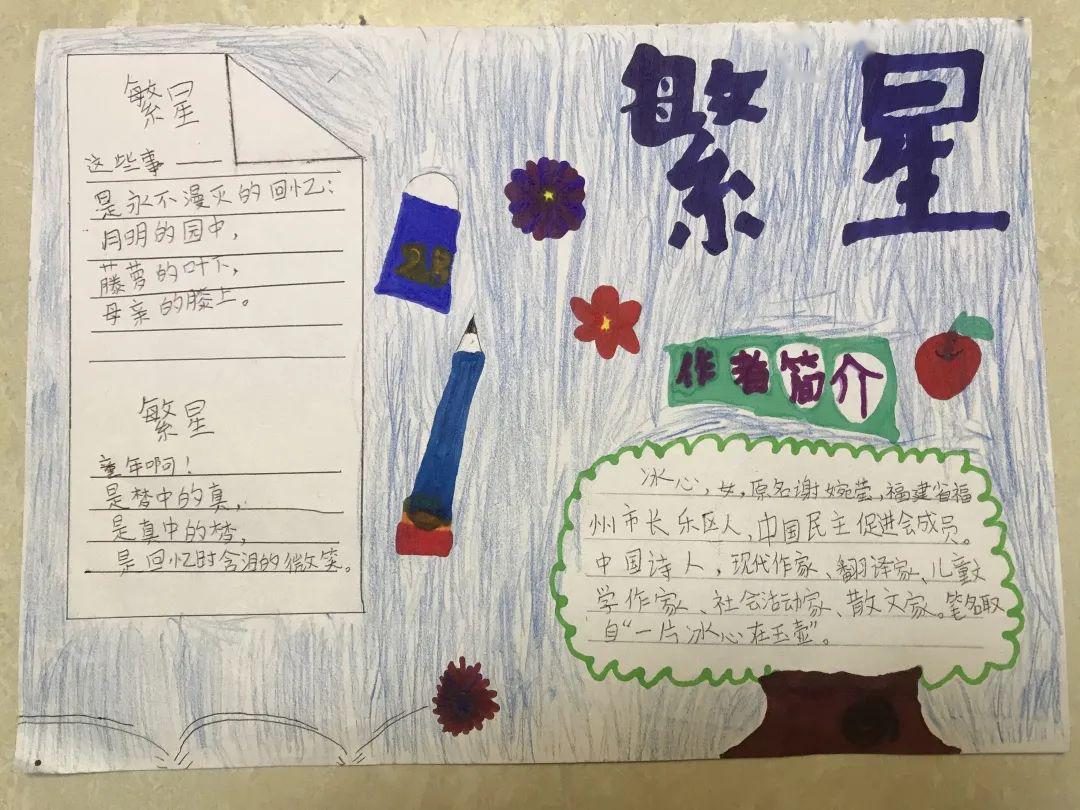 繁星
繁星
这些事——
是永不漫灭的回忆:
月明的园中,
藤萝的叶下,
母亲的膝上。
繁星
童年啊!
是梦中的真,
是真中的梦,
是回忆时含泪的微笑。
2B
作者简介
冰心,女,原名谢婉莹,福建省福
州市长乐区人,中国民主促进会成员。
中国诗人,现代作家、翻译家、儿童文
学作家、社会活动家、散文家。笔名取
自“一片冰心在玉壶”。